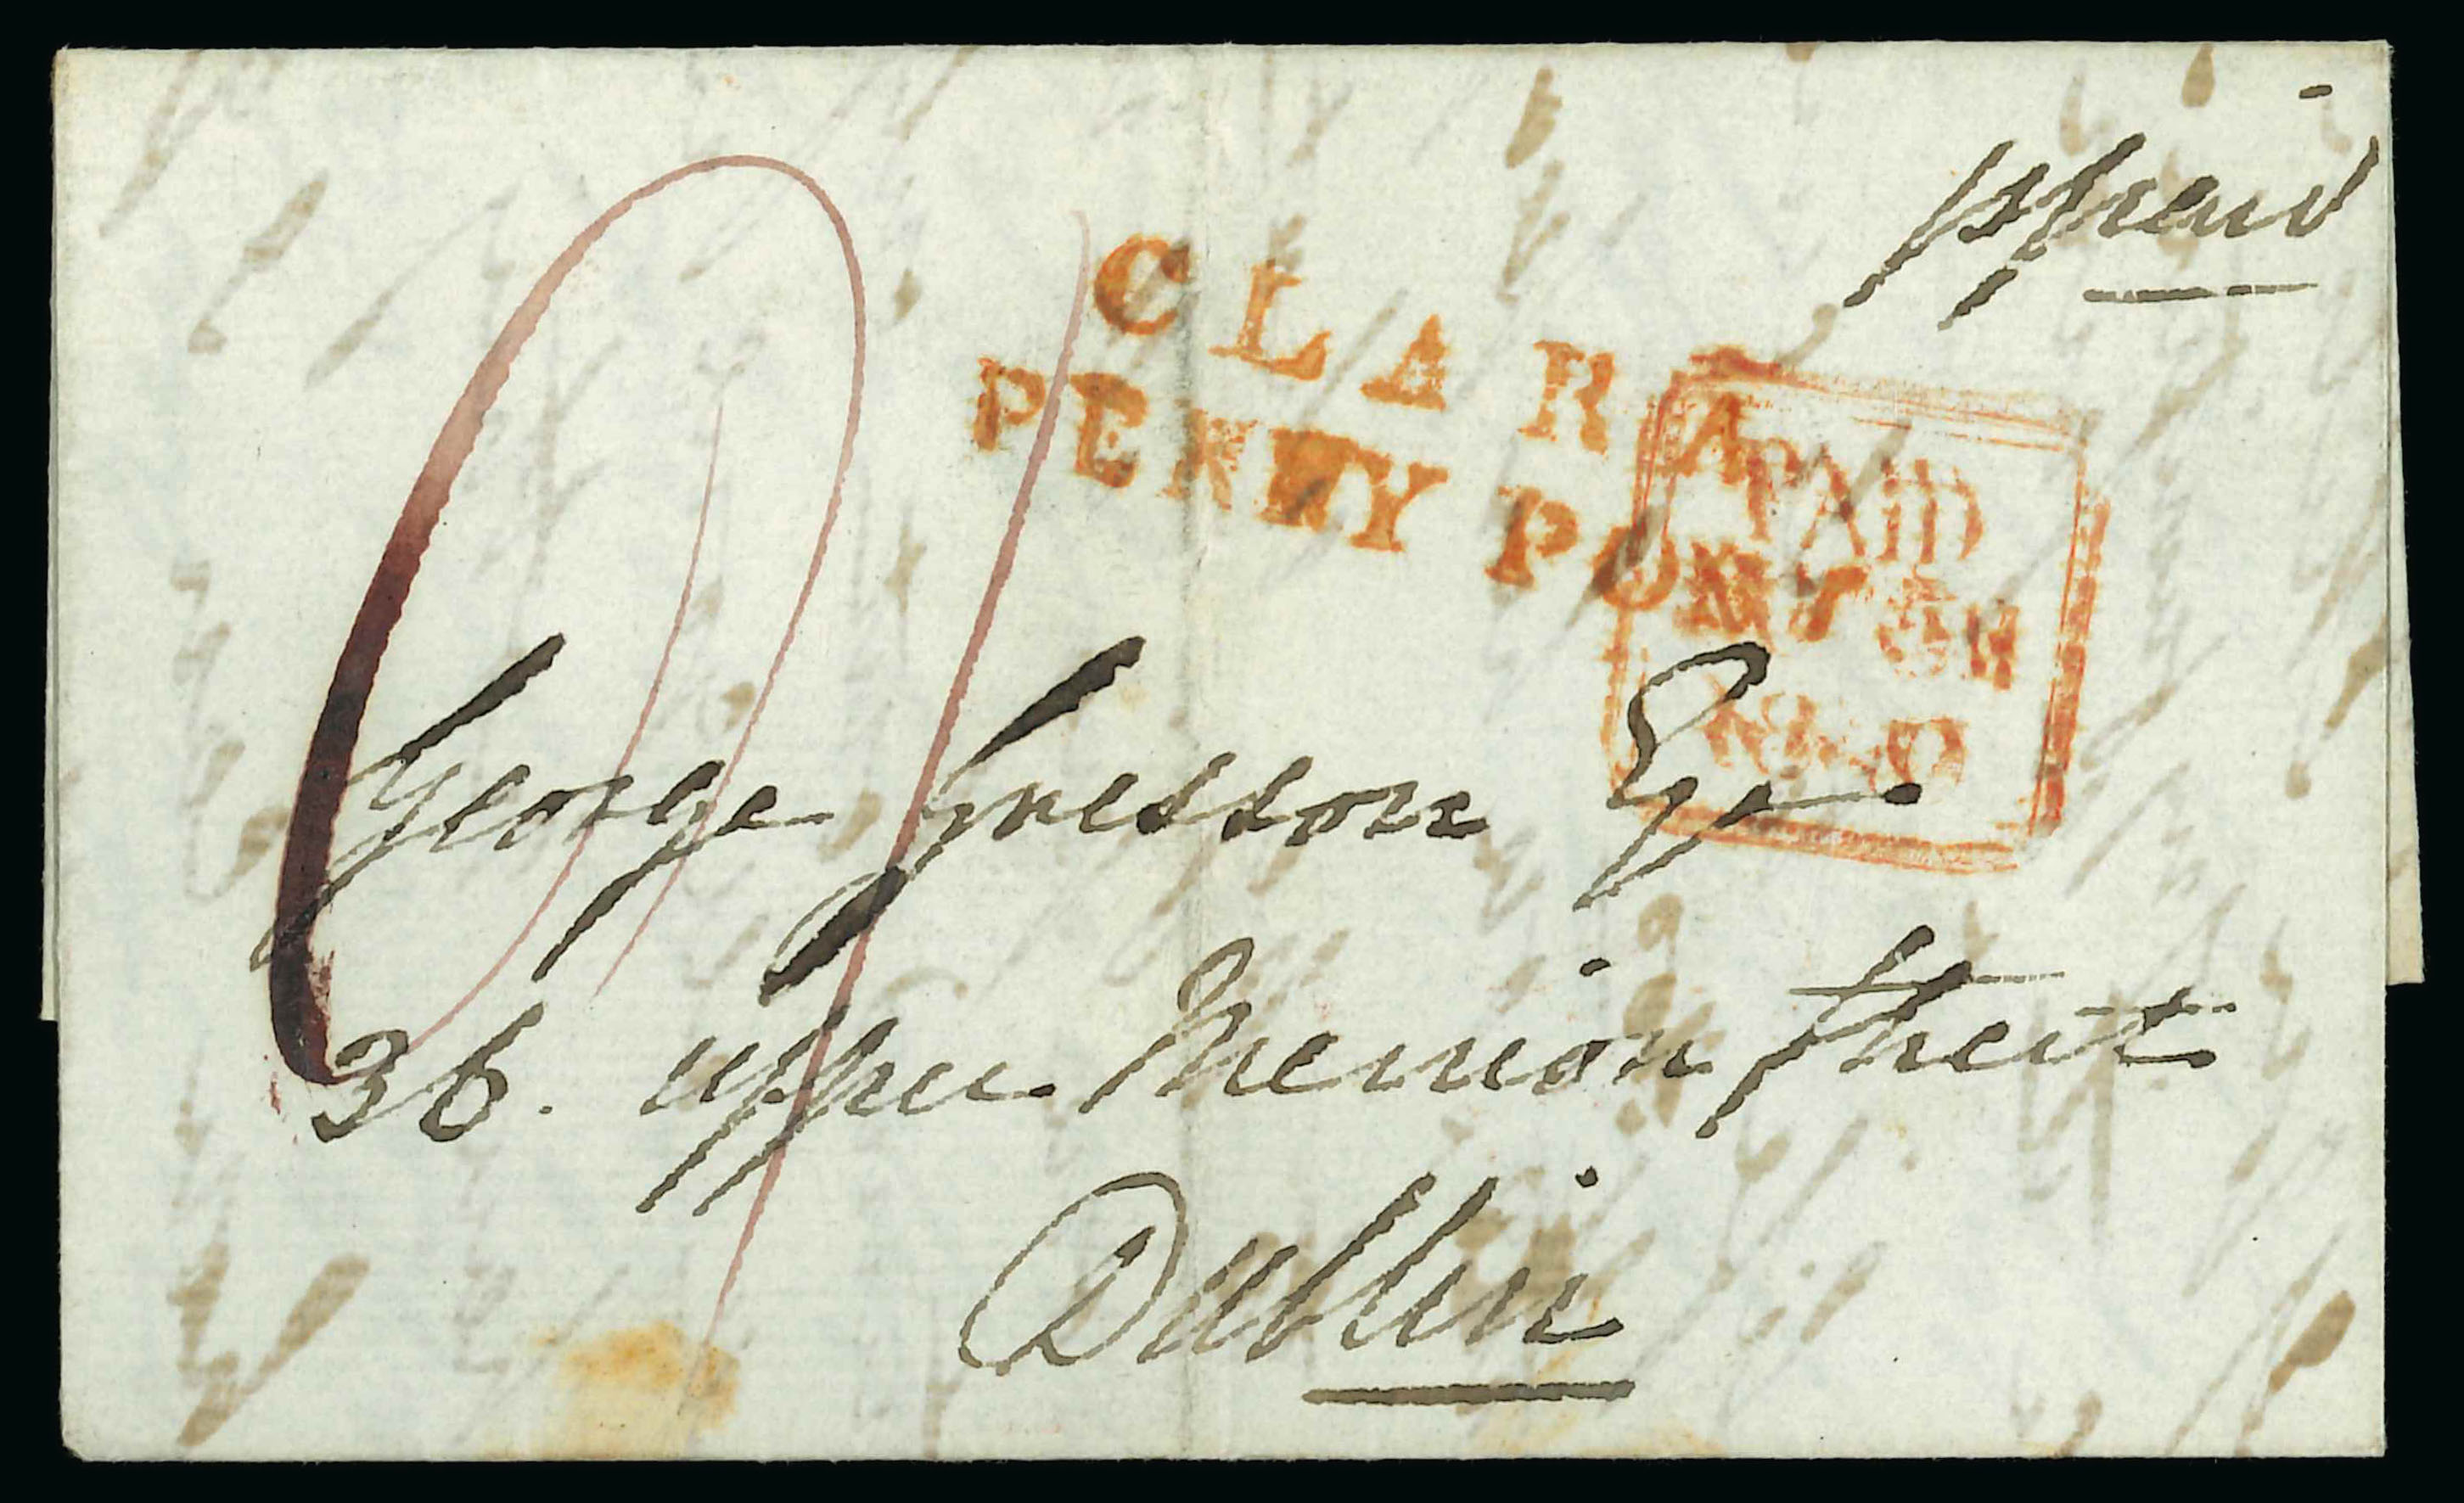 ppaid
CLARA
PENNY POST
PAID
George Gresson Esqr
36. upper Merrion Street
Dublin